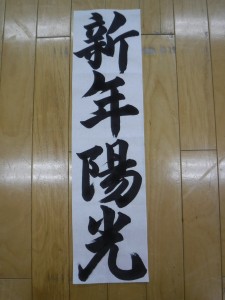 新年陽光